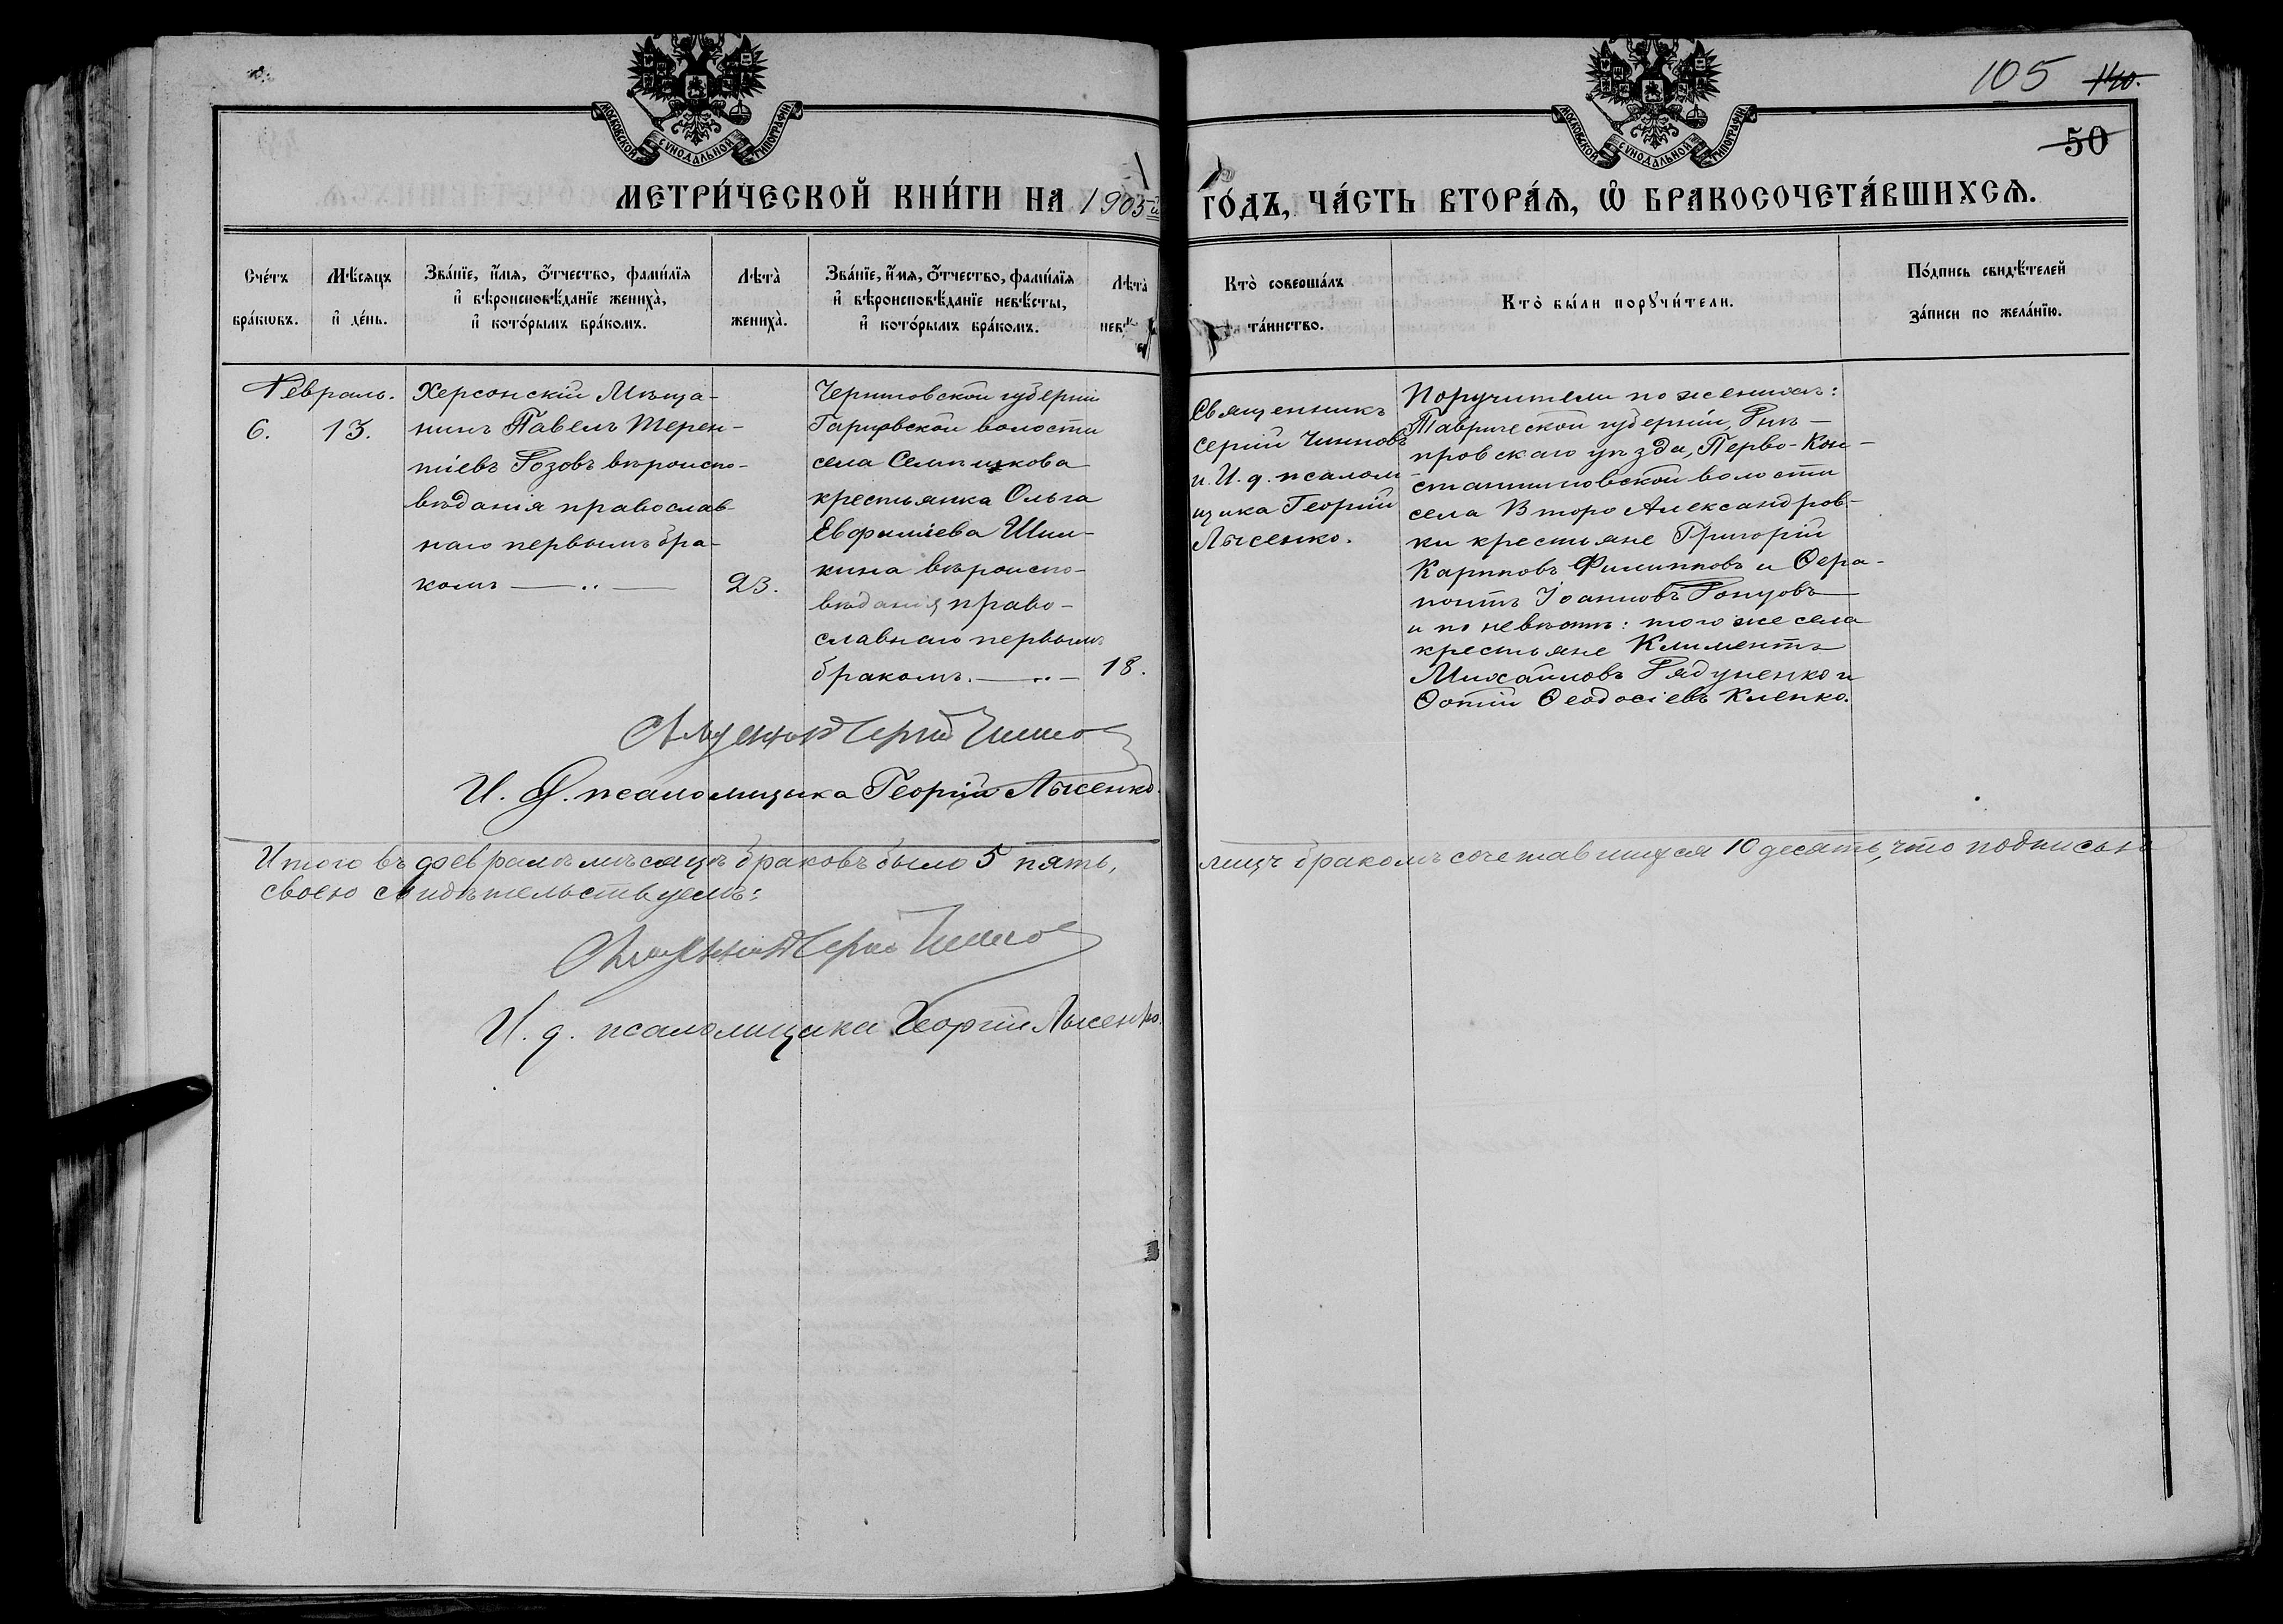 МОСКОВСКОЙ СУНОДАЛЬНОЙ ТИПОГРАФІИ
МОСКОВСКОЙ СУНОДАЛЬНОЙ ТИПОГРАФІИ
105 140.
50
МЕТРИ́ЧЕСКОЙ КНИ́ГИ НА 1903й ГО́ДЪ, ЧА́СТЬ ВТОРА́Ѧ, Ѽ БРАКОСОЧЕТА́ВШИХСѦ.
Сче́тъ бра́кѡвъ.
Мѣ́сяцъ и҆ де́нь.
Зва́нїе, и҆́мѧ, ѻ҆́тчество, фами́лїѧ
и҆ вѣроисповѣ́данїе жениха̀,
и҆ кото́рымъ бра́комъ.
Лѣта̀ жениха̀.
Зва́нїе, и҆́мѧ, ѻ҆́тчество, фами́лїѧ
и҆ вѣроисповѣ́данїе невѣ́сты,
и҆ кото́рымъ бра́комъ.
Лѣта̀
Кто̀ соверша́лъ
та́инство.
Кто̀ бы́ли порꙋчи́тели.
По́дпись свидѣ́телей
за́писи по жела́нїю.
Февраль.
6. 13.
Херсонскій Мѣща-
нинъ Павелъ Терен-
тіевъ Розовъ вѣроиспо-
вѣданія православ-
наго первымъ бра-
комъ — .. —
23.
Черниговской губерніи
волости
села
крестьянка Ольга
Евфиміева Шиш-
кина вѣроиспо-
вѣданія право-
славнаго первымъ
бракомъ. — .. —
18.
Священникъ
Сергій Чинновъ
и И. д. псалом-
щика Георгій
Лысенко.
Поручители по женихѣ:
Таврической губерніи, Днѣ-
провскаго уѣзда, Перво-Кон-
стантиновской волости
села Второ Александров-
ки крестьяне Григорій
Карповъ Филипповъ и Ѳера-
понтъ Іоанновъ
и по невѣстѣ: того же села
крестьяне Климентъ
Михайловъ и
Ѳотій Ѳеодосіевъ Кленко.
Священникъ Сергій Чинновъ
И. Д. псаломщика Георгій Лысенко.
Итого въ февралѣ мѣсяцѣ браковъ было 5 пять, лицъ бракомъ сочетавшихся 10 десять, что подписью
своею свидѣтельствуемъ:
Священникъ Сергій Чинновъ
И. д. псаломщика Георгій Лысенко.